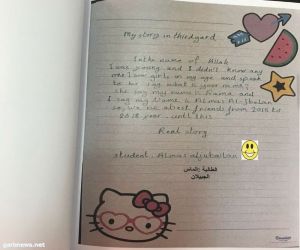 My story in third yard
In the name of Allah
I was young and I didn't know any
one I saw girls in my age and speak
to her I say what is your name?
she say my name is Rama and
I say my name is Almas Al-Jbalan
so, we are a best friends from 2015 to
2018 year. until this
Real story
student: Almas aljubailan
الطالبة :الماس
الجبيلان
garbnews.net